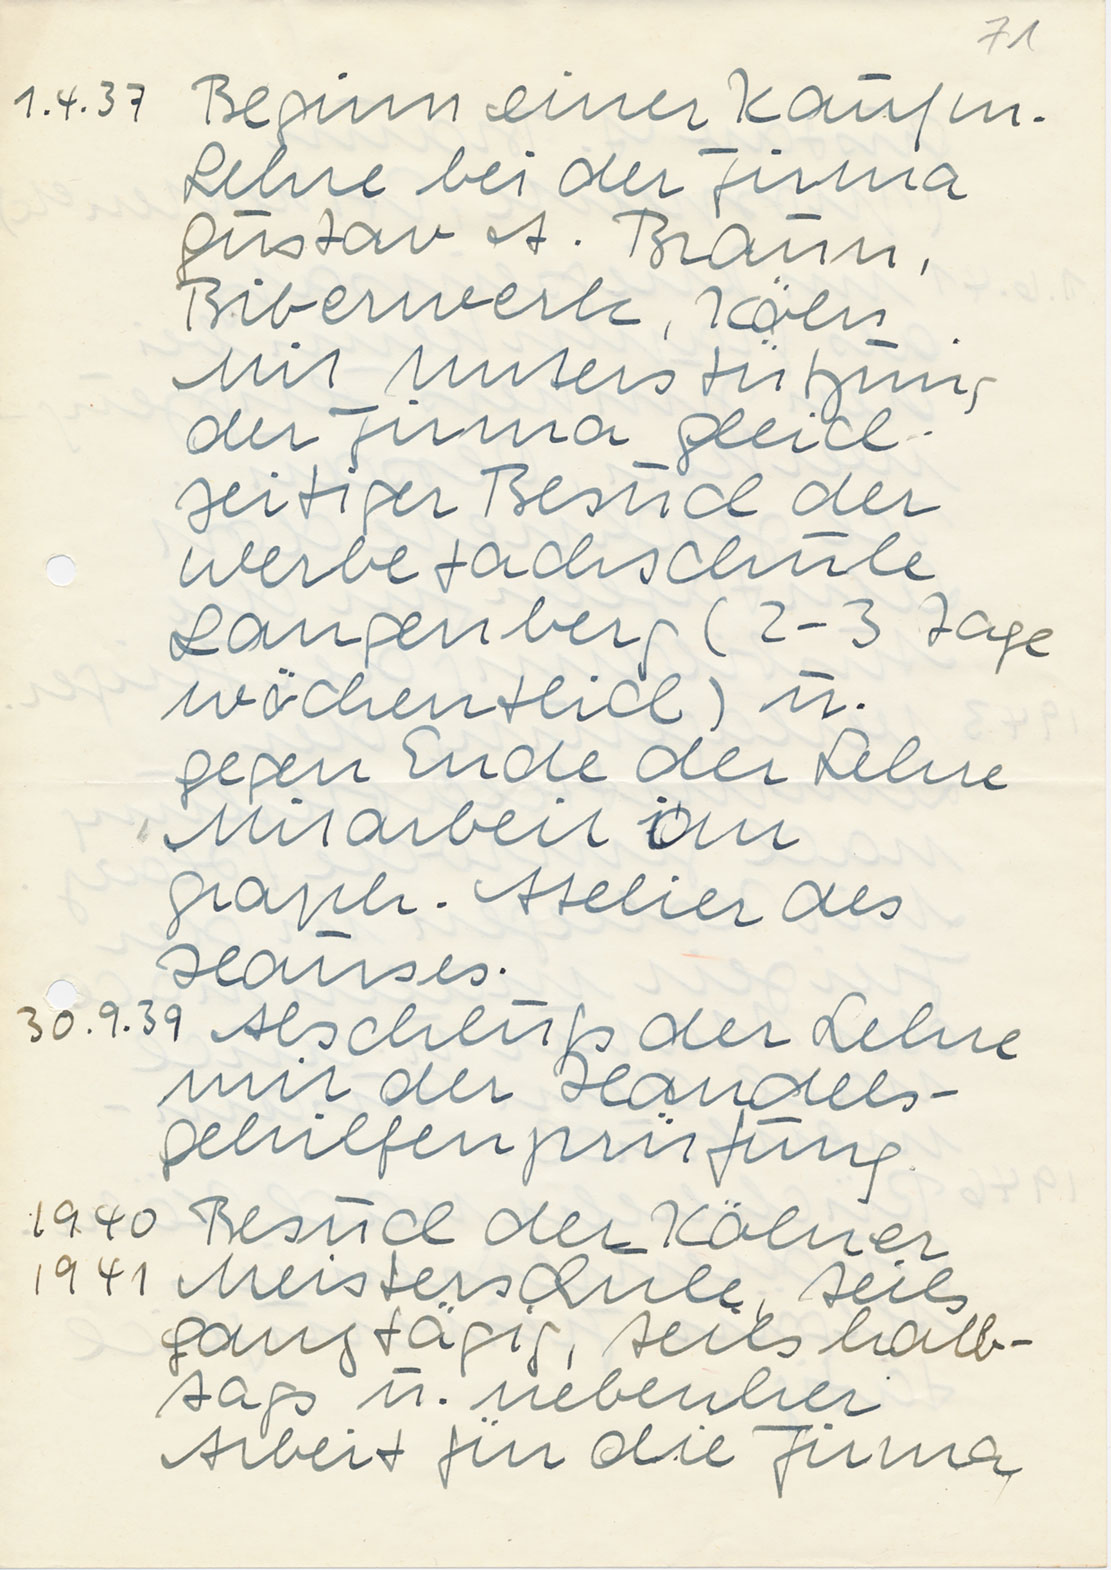 71
1.4.37 Beginn einer Kaufm.
Lehre bei der Firma
Gustav A. Braun,
Biberwerk, Köln
Mit Unterstützung
der Firma gleich-
zeitiger Besuch der
Werbefachschule
Langenberg (2-3 Tage
wöchentlich) u.
gegen Ende der Lehre
Mitarbeit im
graph. Atelier des
Hauses.
30.9.39 Abschluß der Lehre
mit der Handels-
gehilfenprüfung.
1940 Besuch der Kölner
1941 Meisterschule, teils
ganztägig, teils halb-
tags u. nebenher
Arbeit für die Firma